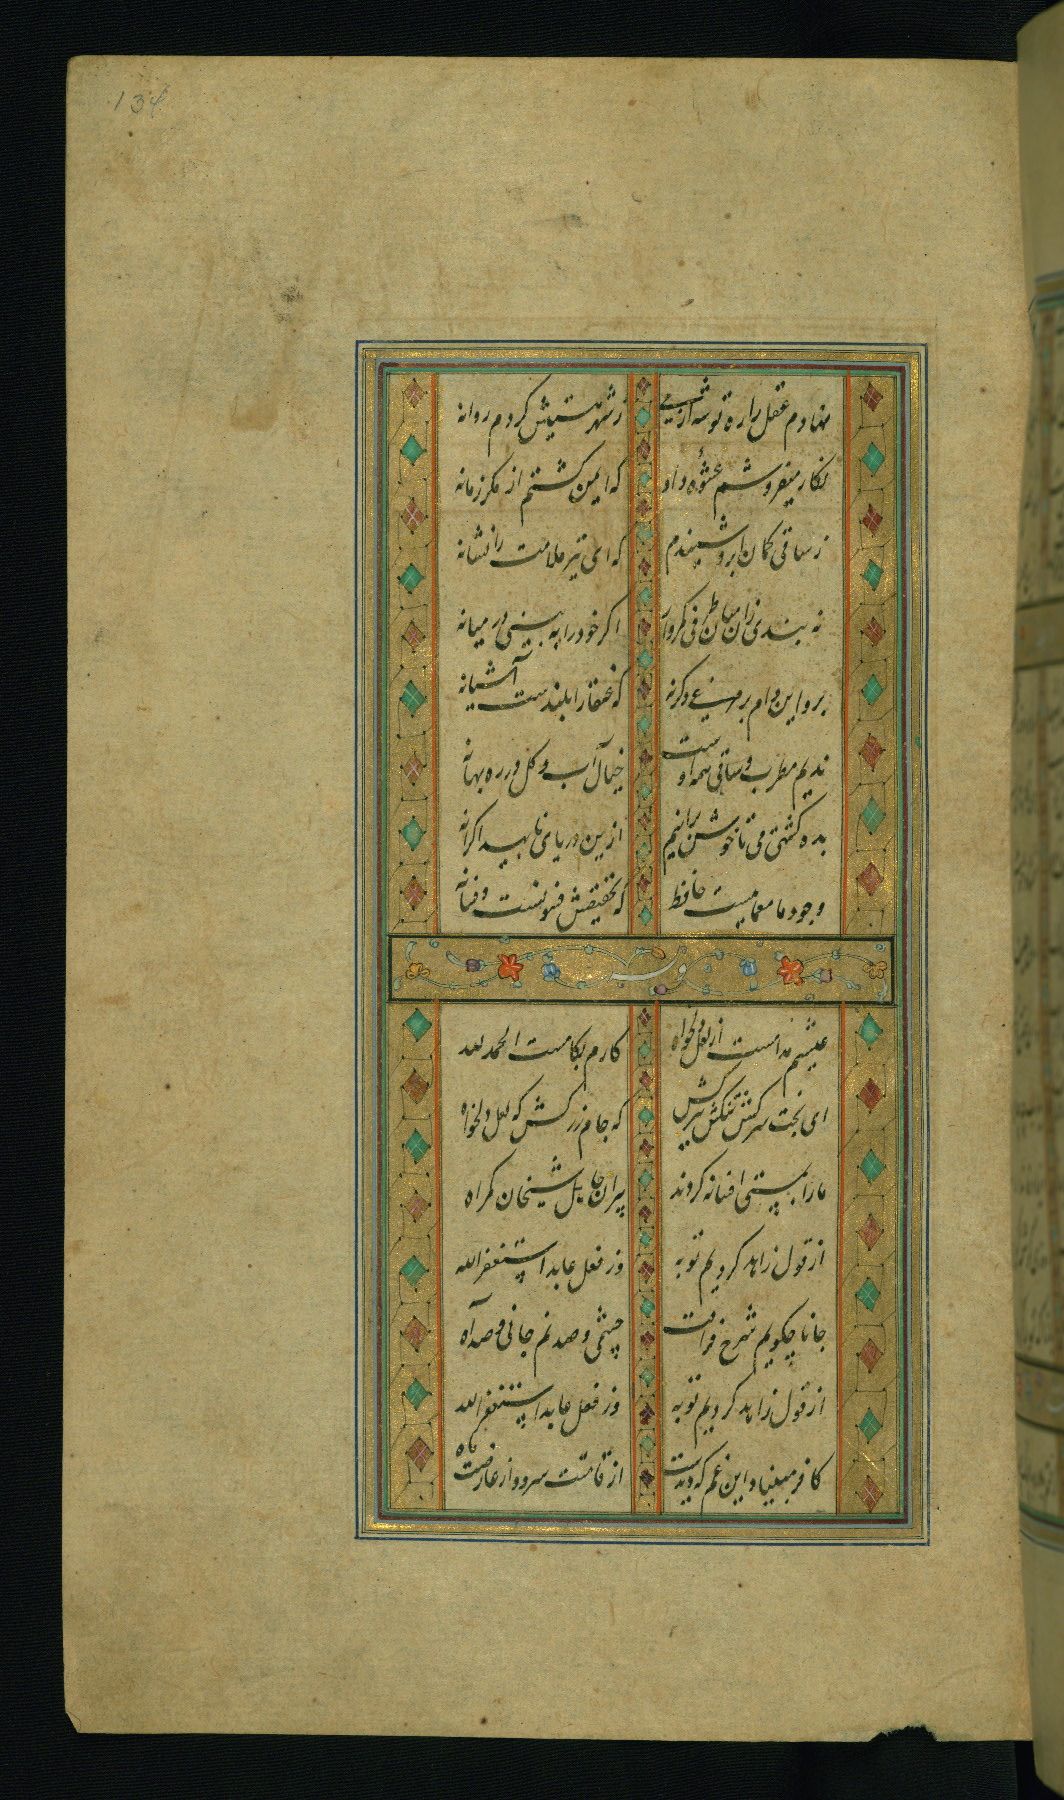 134
نهادم عقل را ره توشه از می
ز شهر هستیش کردم روانه
نکار میفروشم عشوهٔ داد
که ایمن کشتم از مکر زمانه
ز ساقی کمان ابرو شنیدم
که ای تیر ملامت را نشانه
نه بندی زان میان طرفی کمروار
اکر خود را به بینی در میانه
برو این دام بر مرغی دکر نه
که عنقا را بلندست آشیانه
ندیم مطرب و ساقی همه اوست
خیال آب و کل در ره بهانه
بده کشتی می تا خوش برانیم
ازین دریای ناپیدا کرانه
وجود ما معماییست حافظ
که تحقیقش فسونست و فسانه
وله
عیشم مدامست از لعل دلخواه
کارم بکامست الحمد لله
ای بخت سرکش تنکش ببر کش
که جام زر کش که لعل دلخواه
ما را بمستی افسانه کردند
پیران جاهل شیخان کمراه
از قول زاهد کردیم توبه
وز فعل عابد استغفر الله
جانا چکویم شرح فراقت
چشمی و صد نم جانی و صد آه
از قول زاهد کردیم توبه
وز فعل عابد استغفر الله
کافر مبیناد این غم که دیدست
از قامتت سرو و از عارضت ماه